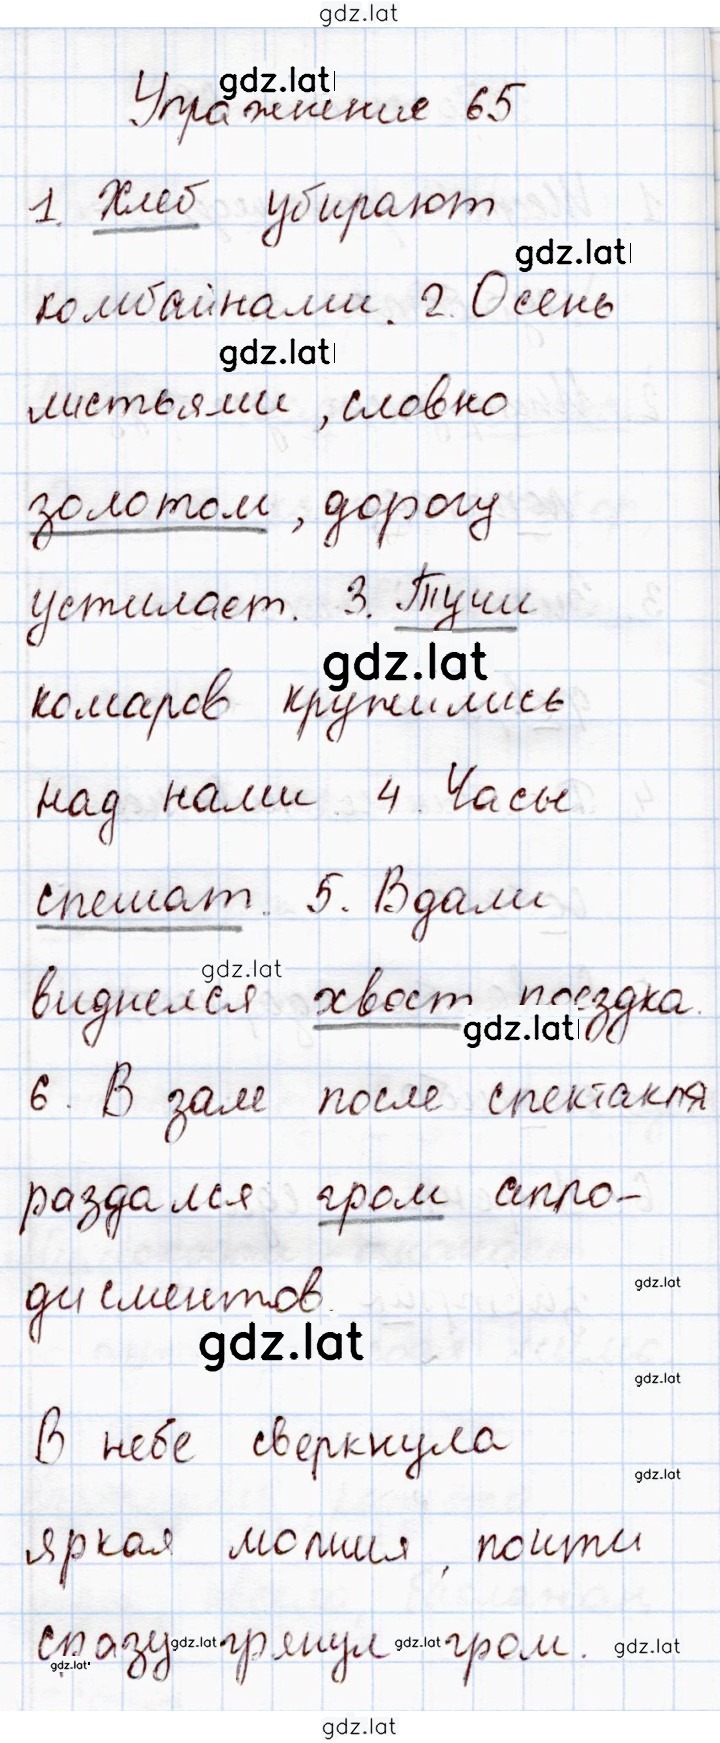 gdz.lat
gdz.lat
Упражнение 65
1. Хлеб убирают
gdz.lat
комбайнами. 2. Осень
gdz.lat
листьями, словно
золотом, дорогу
устилает. 3. Тучи
gdz.lat
комаров кружились
над нами. 4. Часы
спешат. 5. Вдали
gdz.lat
виднелся хвост поездка.
gdz.lat
6. В зале после спектакля
раздался гром апло-
gdz.lat
дисментов.
gdz.lat
gdz.lat
В небе сверкнула
gdz.lat
яркая молния, почти
сразу грянул гром.
gdz.lat gdz.lat gdz.lat
gdz.lat
gdz.lat